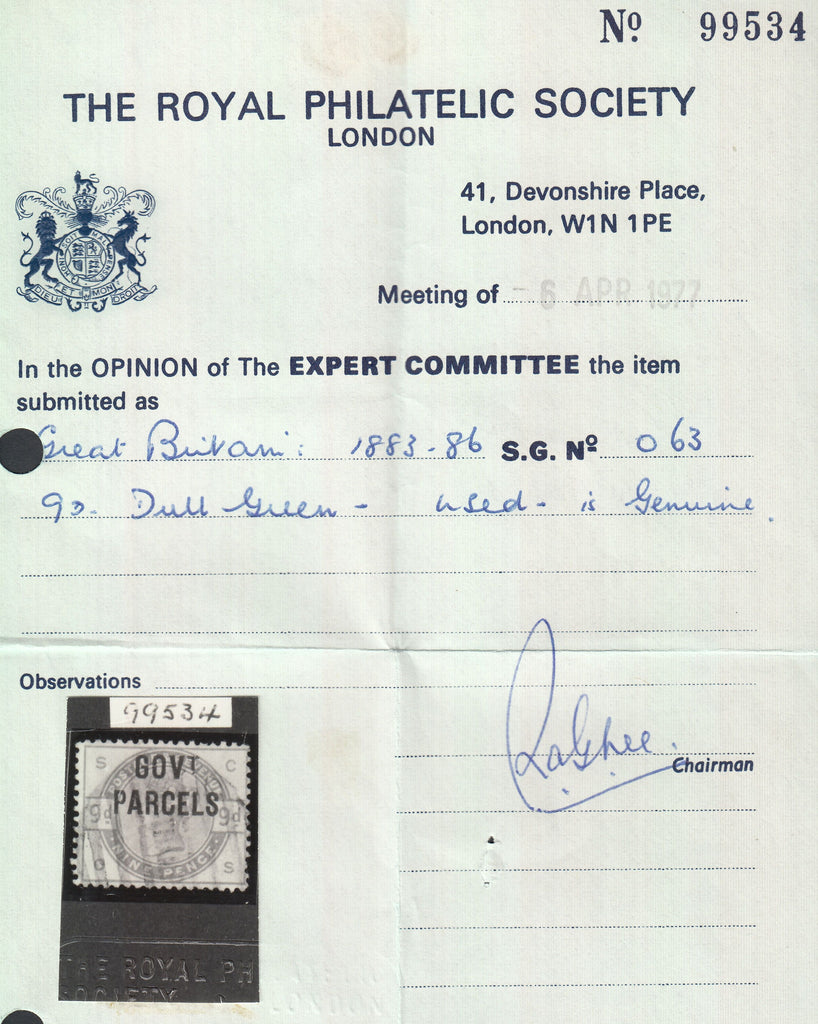 Nº 99534
THE ROYAL PHILATELIC SOCIETY
LONDON
41, Devonshire Place,
London, W1N 1PE
SOIT MAL PENSE HONI
DIEU ET MON DROIT
Meeting of - 6 APR 1977
In the OPINION of The EXPERT COMMITTEE the item
submitted as
Great Britain: 1883-86 S.G. Nº O63
9d. Dull Green - used - is Genuine.
Observations
99534
Chairman
S C
GOVT
PARCELS
9d 9d
NINE PENCE
C S
THE ROYAL PH
SOCIETY
LONDON